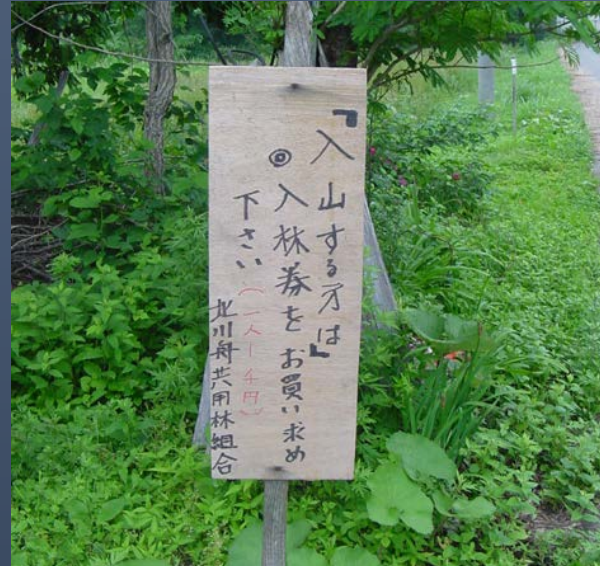 『入山する方は』
◎入林券をお買い求め
下さい(一人一千円)
北川舟共用林組合